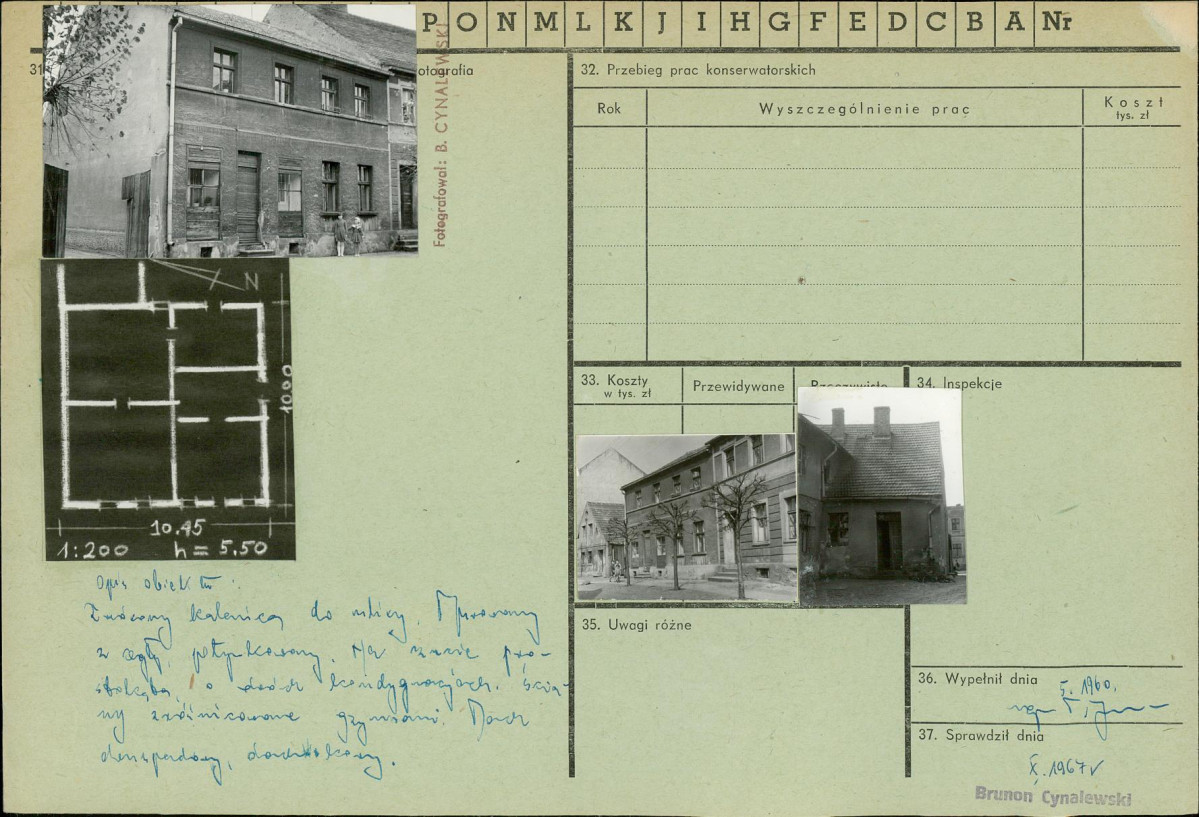 P O N M L K J I H G F E D C B A Nr
31
otografia
Fotografował: B. CYNALEWSKI
32. Przebieg prac konserwatorskich
Rok
Wyszczególnienie prac
Koszt
tys. zł
N
10.00
10.45
1:200 h = 5.50
33. Koszty
w tys. zł
Przewidywane
Rzeczywiste
34. Inspekcje
opis obiektu:
Zwrócony kalenicą do ulicy. Murowany
z cegły, potynkowany. Na rzucie pro-
stokąta, o dwóch kondygnacjach. Ścia-
ny zróżnicowane gzymsami. Dach
dwuspadowy, dachówkowy.
35. Uwagi różne
36. Wypełnił dnia
5. 1960,
mgr T.
37. Sprawdził dnia
X. 1967
Brunon Cynalewski